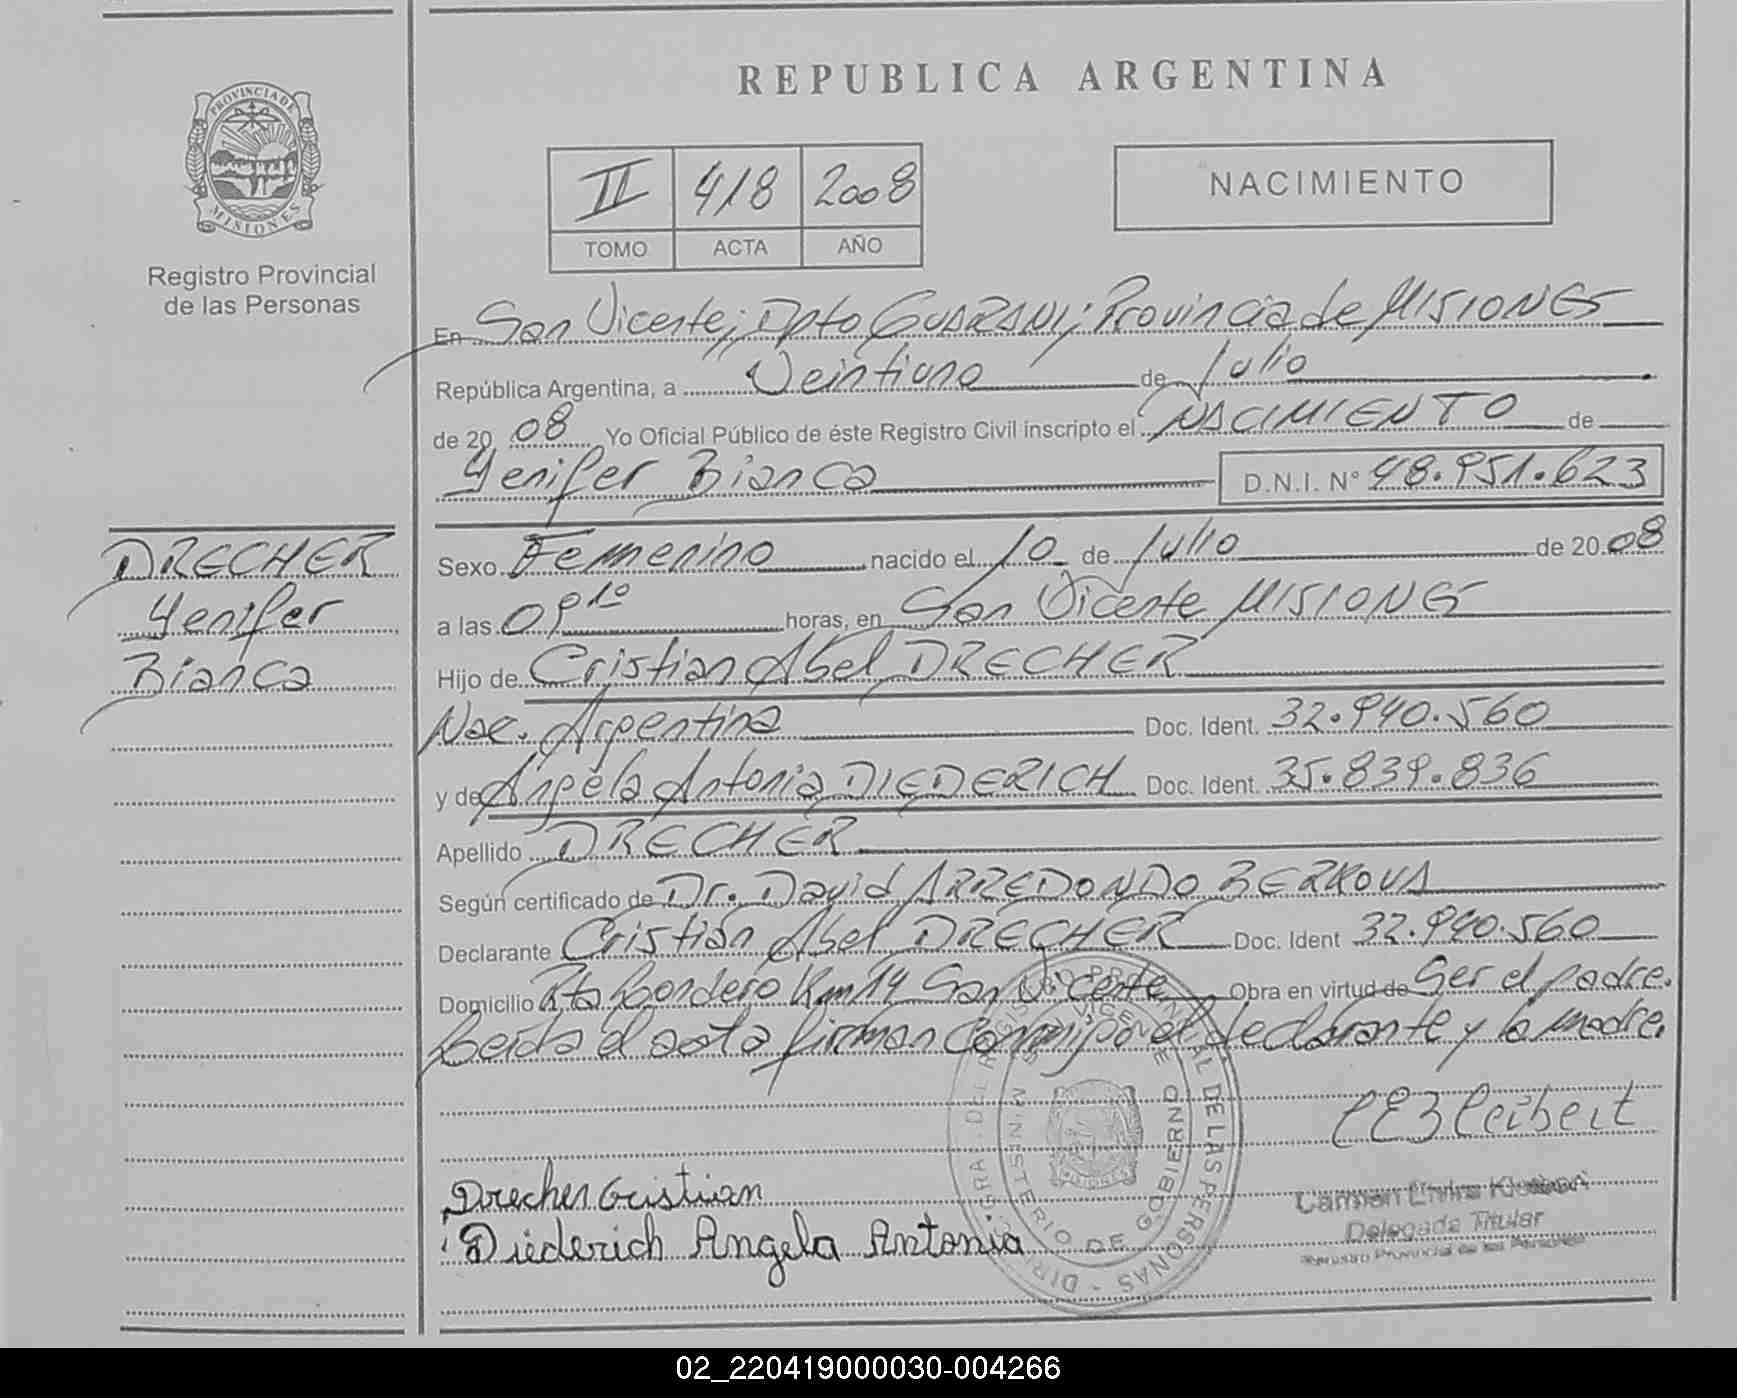 REPUBLICA ARGENTINA
PROVINCIA DE
MISIONES
Registro Provincial
de las Personas
II 418 2008
TOMO ACTA AÑO
NACIMIENTO
En San Vicente; Dpto GUARANI; Provincia de MISIONES
República Argentina, a Veintiuno de Julio
de 2008 Yo Oficial Público de éste Registro Civil inscripto el NACIMIENTO de
Yenifer Bianca D.N.I. N° 48.951.623
DRECHER
Yenifer
Bianca
Sexo Femenino nacido el 10 de Julio de 2008
a las 09 10 horas, en San Vicente MISIONES
Hijo de Cristian Abel DRECHER
Nac. Argentina Doc. Ident. 32.940.560
y de Angela Antonia DIEDERICH Doc. Ident. 35.839.836
Apellido DRECHER
Según certificado de Dr. David ARREDONDO BERKOVA
Declarante Cristian Abel DRECHER Doc. Ident 32.940.560
Domicilio Rta Km 14 San Vicente Obra en virtud de Ser el padre.
Leida el acta firman conmigo el declarante y la madre.
Drecher Cristian
Diederich Angela Antonia
MINISTERIO DE GOBIERNO
SAN VICENTE
DE LAS PERSONAS
Delegada Titular
Registro Provincial de las Personas
02_220419000030-004266